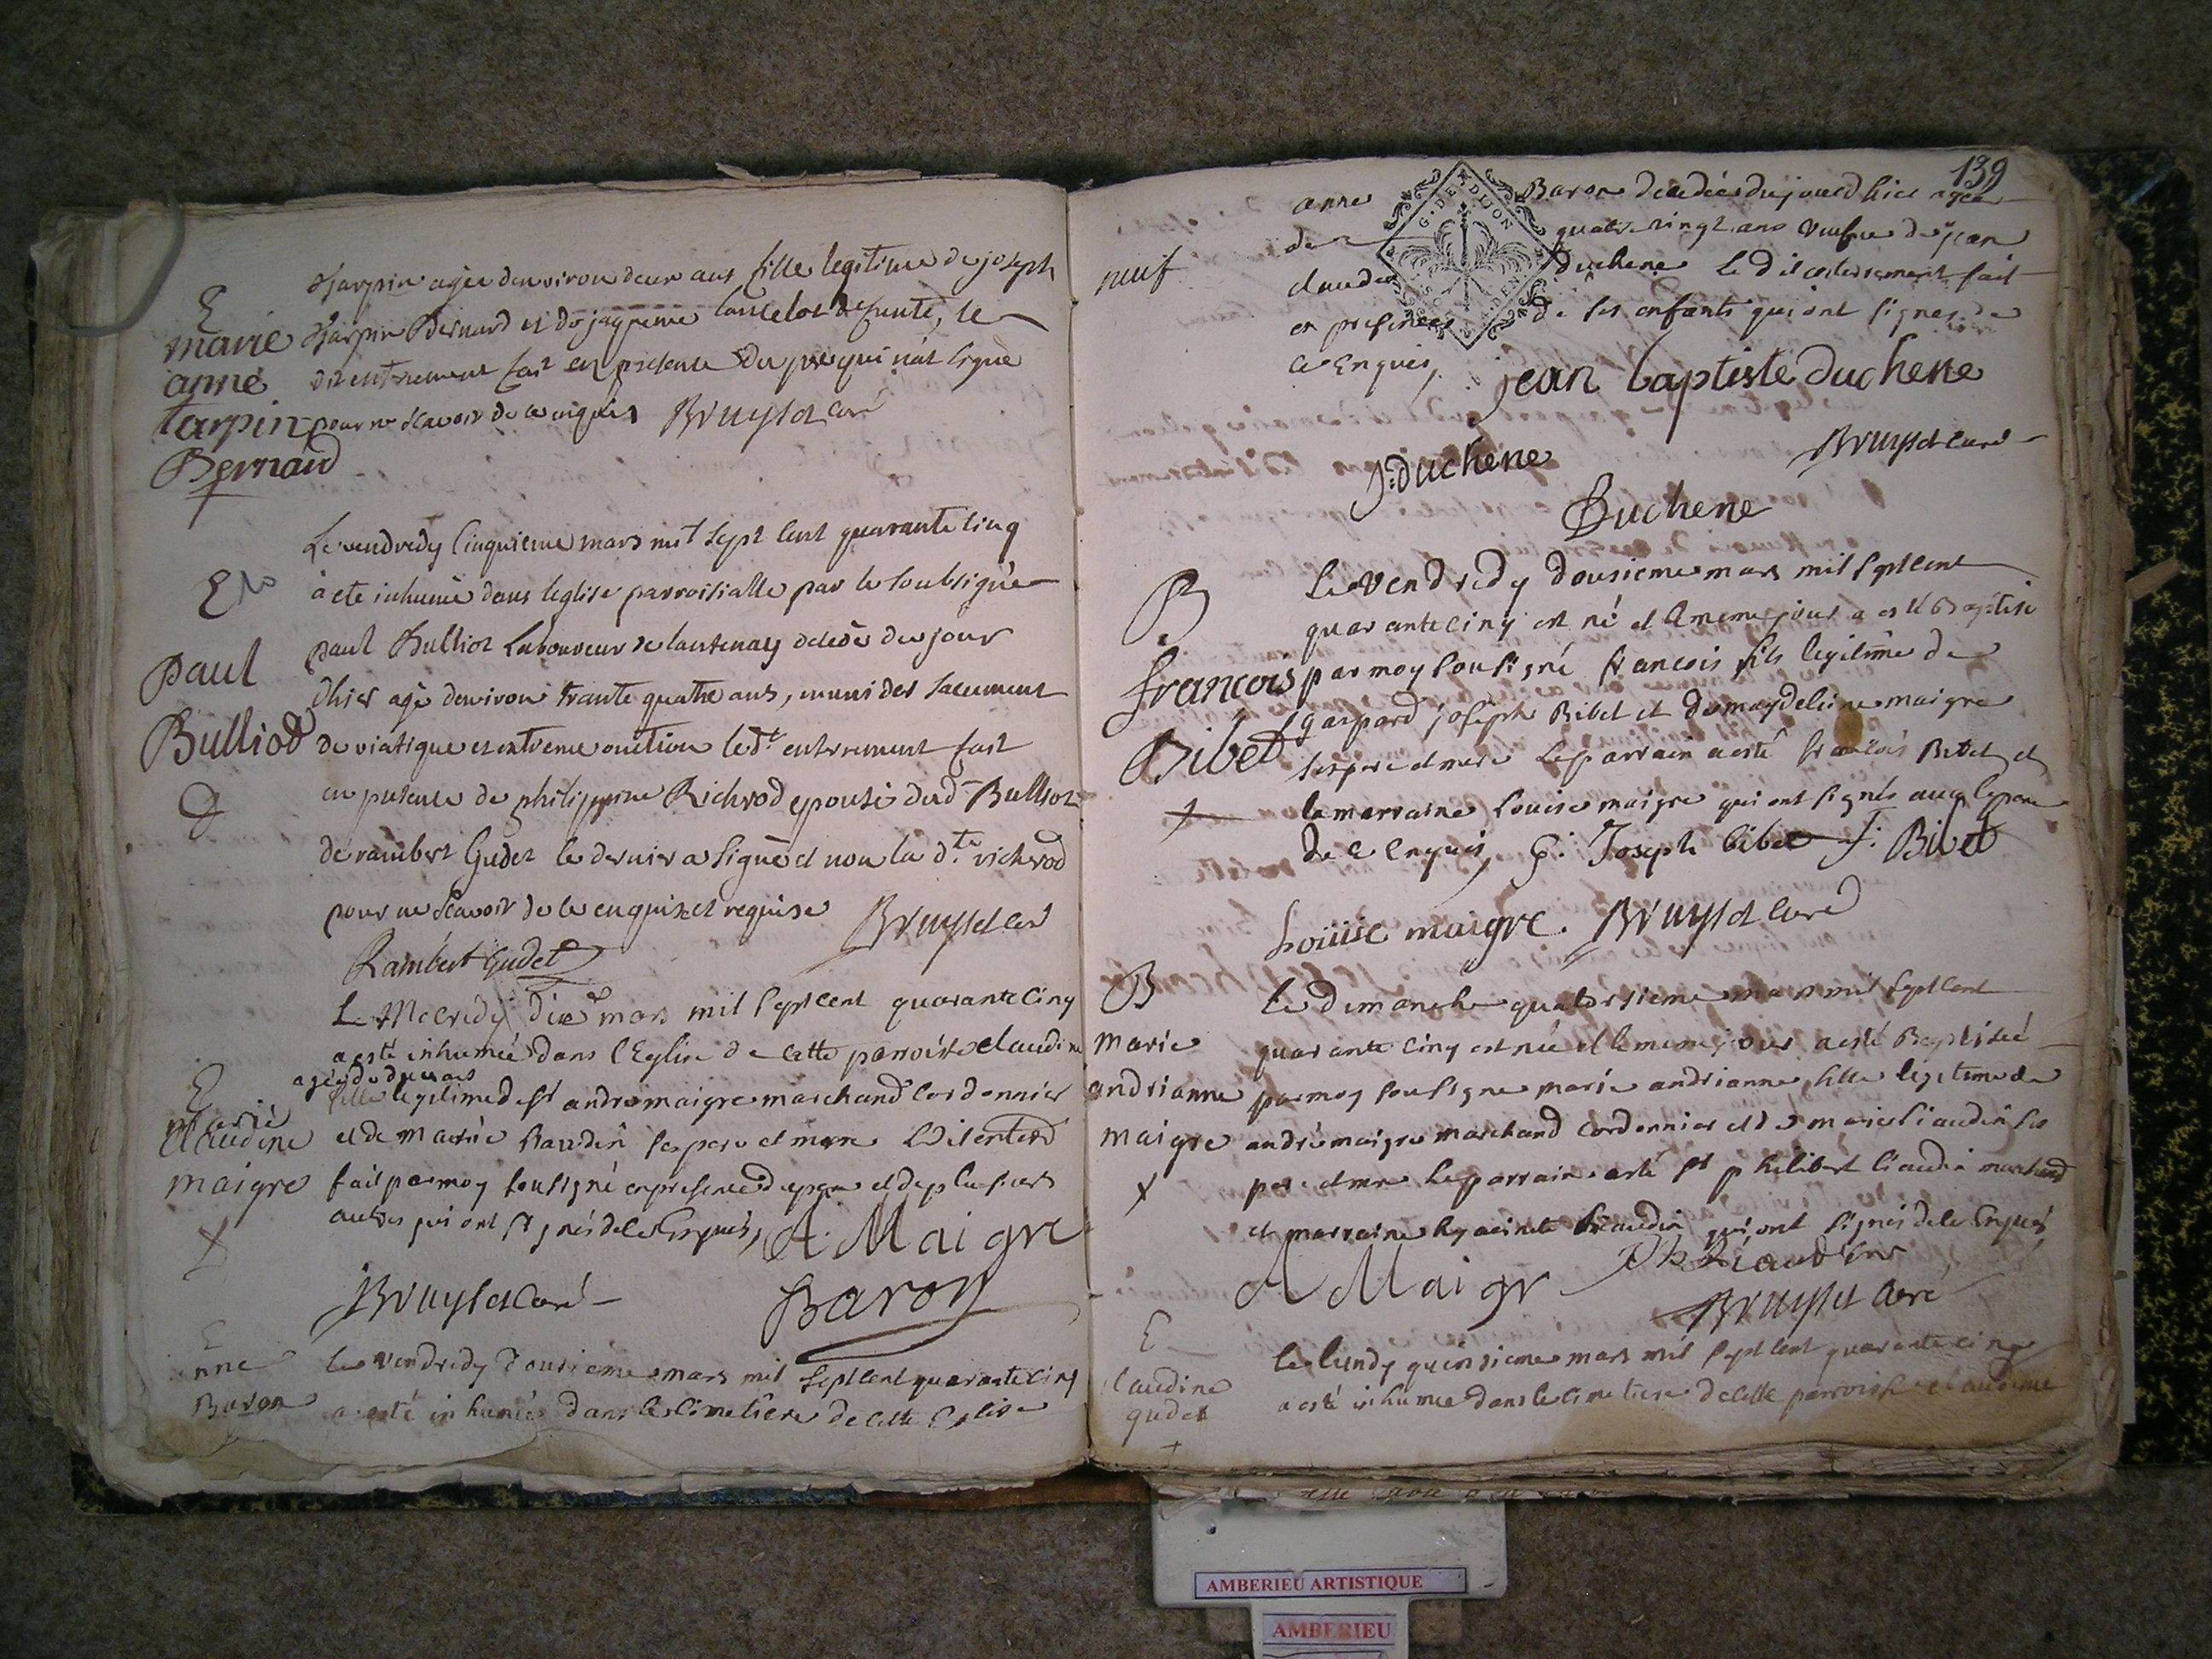 E
marie
anne
tarpin
Bernard
tharpin agée denviron deux ans fille legitime de joseph
tharpin Bernard et de jaqueme lancelot defunte, le
dit enterrement fait en presence du pere qui n'at signé
pour ne scavoir de ce enquis Bruyset curé
E
Paul
Bulliod
Le vendredy cinquieme mars mil sept cent quarante cinq
à eté inhumé dans leglise parroissialle par le soubsigné
paul Bulliot laboureur de lantenay decedé du jour
dhier agé denviron trante quatre ans, muni des sacrement
de viatique et extreme onction le dt enterrement fait
en presence de philippine Richrod epouse dud Bulliot
de rambert Gudet le dernier a signé et non la dte richrod
pour ne scavoir de ce enquise et requise Bruyset curé
Rambert Gudet
E
marie
claudine
maigre
Le Mecredy dix mars mil sept cent quarante cinq
a esté inhumée dans l'Eglise de cette parroisse claudine
agée de deux ans
fille legitime de sr andré maigre marchand cordonnier
et de marie liaudin ses pere et mere Ledit enterrt
fait par moy sousigné en presence du pere et de plusieurs
autres qui ont signés de ce Enquis, A. Maigre
Bruyset Curé Baron
E
anne
Baron
Le vendredy dousieme mars mil sept cent quarante cinq
a esté inhumée dans le cimetiere de cette Eglise
139
neuf
G. DE DIJON
anne Baron decedée du jourd hier agée
de quatre vingt ans veufve de jean
claude duchene Le dit enterrement fait
en presence de ses enfants qui ont signes de
ce Enquis, jean baptiste duchene
J: duchene Bruyset curé
Duchene
B
francois
Bibet
Le vendredy dousieme mars mil sept cent
quarante cinq est né et le meme jour a esté Baptisé
par moy sousigné francois fils legitime de
gaspard joseph Bibet et de magdeleine maigre
ses pere et mere Le parrain a esté francois Bibet et
la marraine Louise maigre qui ont signés avec le pere
de ce Enquis, G. Joseph bibet f. Bibet
Loüise maigre. Bruyset curé
B
marie
andrianne
maigre
Le dimanche quatorsieme mars mil sept cent
quarante cinq est née et le meme jour a esté Baptisée
par moy sousigne marie andrianne fille legitime de
andré maigre marchand cordonnier et de marie liaudin ses
pere et mere Le parrain a esté sr philibert liaudin marchand
et marraine hyacinte liaudin qui ont signés de ce Enquis,
A Maigr Ph Liaudin
Bruyset curé
E
claudine
gudet
Le lundy quinsieme mars mil sept cent quarante cinq
a esté inhumée dans le cimetiere de cette parroisse claudine
AMBERIEU ARTISTIQUE
AMBERIEU